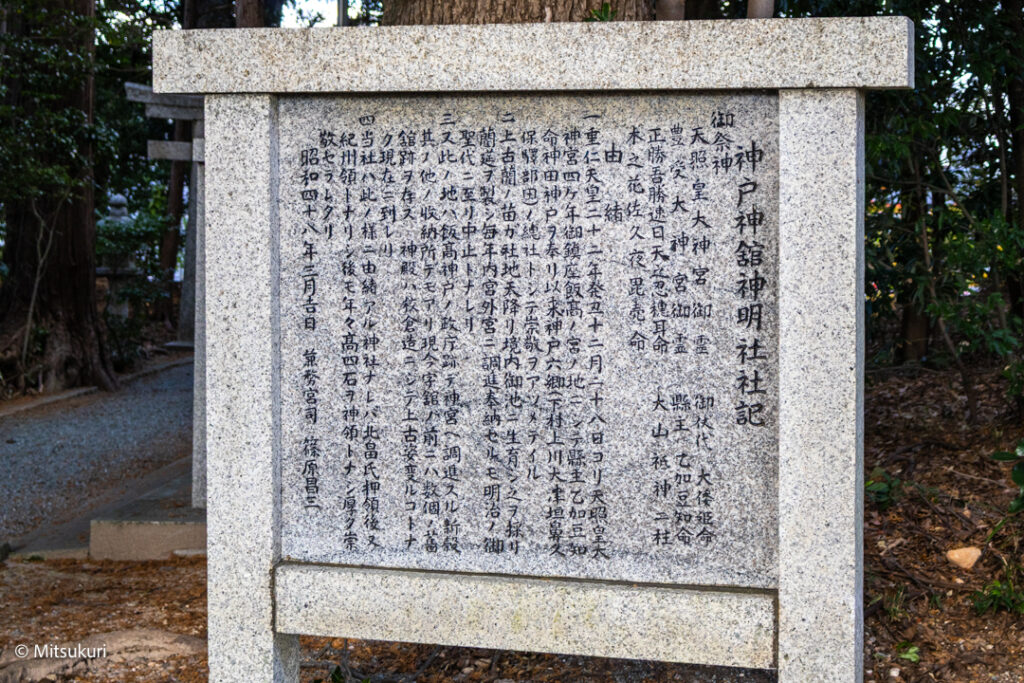 神戸神舘神明社社記
御祭神
天照皇大神宮御霊 御杖代 大倭姫命
豊受大神宮御霊 縣主乙加豆知命
正勝吾勝速日天之忍穂耳命 大山祗神二社
木之花佐久夜毘売命
由緒
一垂仁天皇二十二年癸丑十二月二十八日ヨリ天照皇大
神宮四ケ年御鎮座飯高ノ宮ノ地ニシテ縣主乙加豆知
命神田神戸ヲ奉リ以来神戸六郷下村上川大津垣鼻久
保驛部田ノ総社トシテ崇敬ヲアツメテイル
二上古蘭ノ苗ガ社地天降リ境内御池ニ生育シ之ヲ採リ
蘭莚ヲ製シ毎年内宮外宮ニ調進奉納セルモ明治ノ御
聖代ニ至リ中止トナレリ
三又此ノ地ハ飯高神戸ノ政庁跡デ神宮ヘ調進スル新穀
其ノ他ノ収納所デモアリ現今字舘ノ前ニハ数個ノ舊
舘跡ヲ存ス 神殿ハ校倉造ニシテ上古姿変ルコトナ
ク現在ニ到レリ
四当社ハ此ノ様ニ由緒アル神社ナレバ北畠氏押領後又
紀州領トナリシ後モ年々高四石ヲ神領トナシ厚ク崇
敬セラムタリ
昭和四十八年三月吉日 兼務宮司 篠原昌三
© Mitsukuri